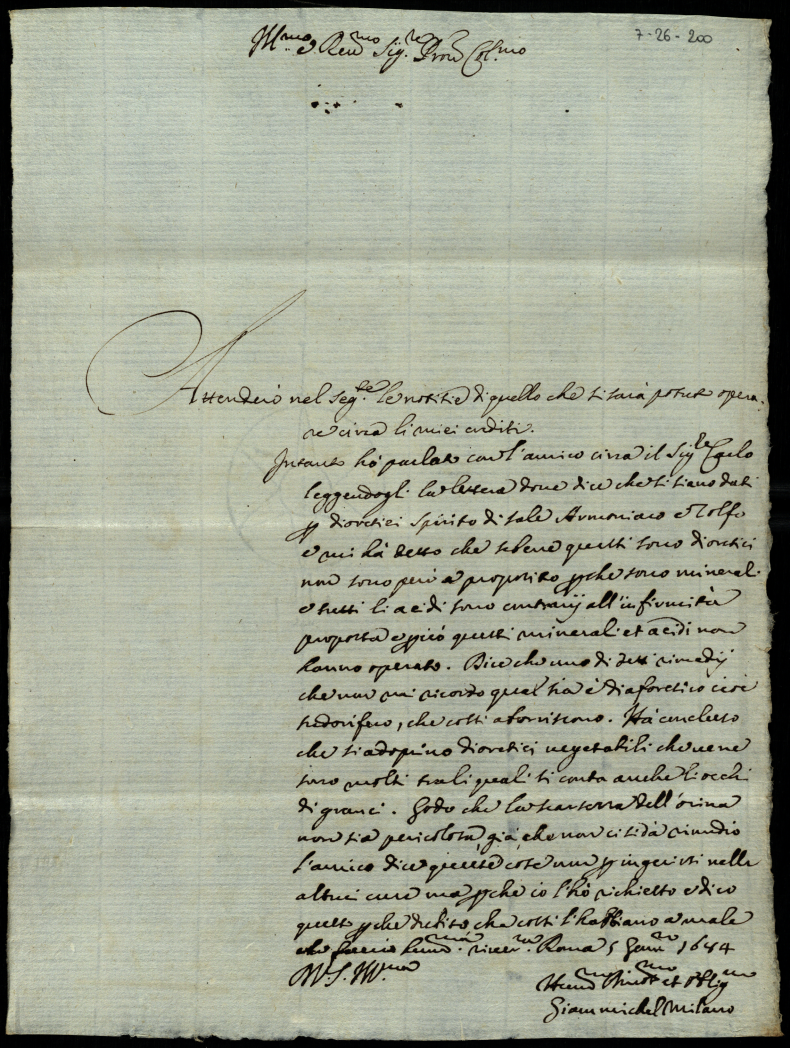 7-26-200
Ill.mo e Rev.mo Sig.re Pron Col.mo
Attenderò nel seg.te le notitie di quello che si sarà potuto opera-
re circa li miei crediti.
Intanto hò parlato con l'amico circa il Sig.re Carlo
leggendogli la lettera dove dice che si siano dati
p dioretici spirito di sale Armoniaco e Zolfo
e mi hà detto che sebene questi sono dioretici
non sono però a proposito pche sono minerali
e tutti li acidi sono contrarij all'infirmità
proposta e pciò questi minerali et acidi non
hanno operato. Dice che uno di detti rimedij
che non mi ricordo qual sia è diaforetico cioè
sudorifero, che costì aborriscono. Hà concluso
che si adoprino dioretici vegetabili che ve ne
sono molti tra li quali si conta anche li occhi
di granci. Godo che la scarsezza dell'orina
non sia pericolosa, già che non ci si dà rimedio
l'amico dice queste cose non p ingerirsi nelle
altrui cure ma pche io l'hò richiesto e dico
questo pche dubito che costì l'habbiano a male
e le faccio hum.ma river.za. Roma 5 Genn.ro 1644
D V. S. Ill.ma
Hum.mo Dev.mo et Oblig.mo
Giammichel Milano